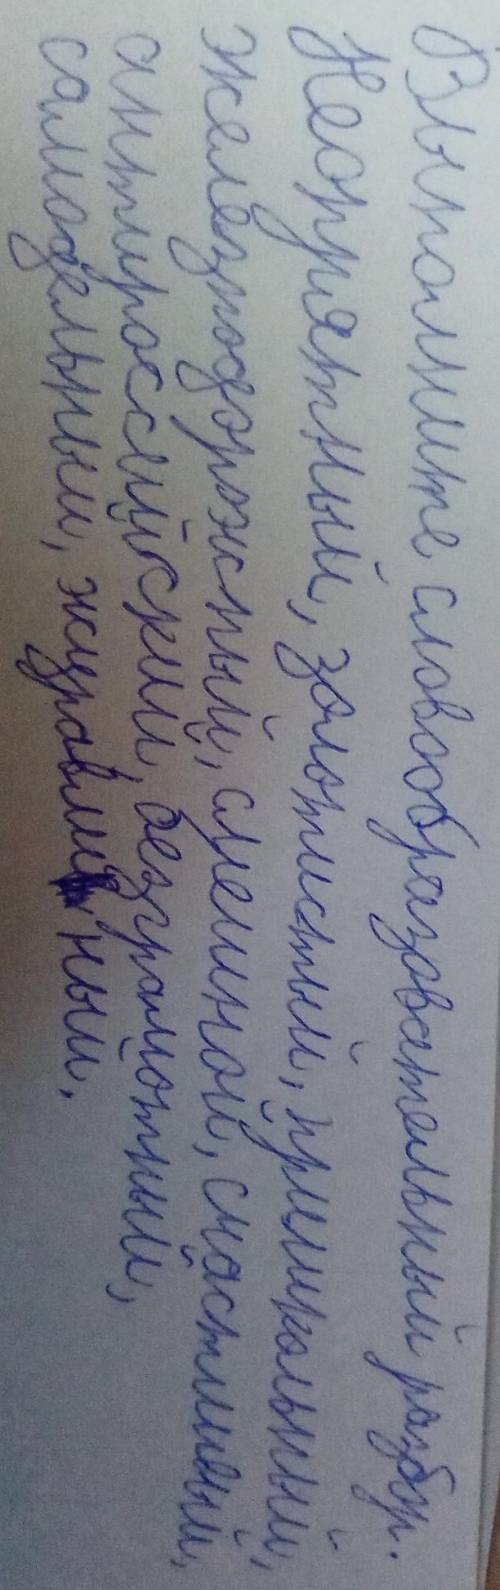 Выполните словообразовательный разбр.
Неопрятный, золотистый, пришкольный,
железнодорожный, сменной, счастливый,
антироссийский, безграмотный,
самодельный, журавлиный.